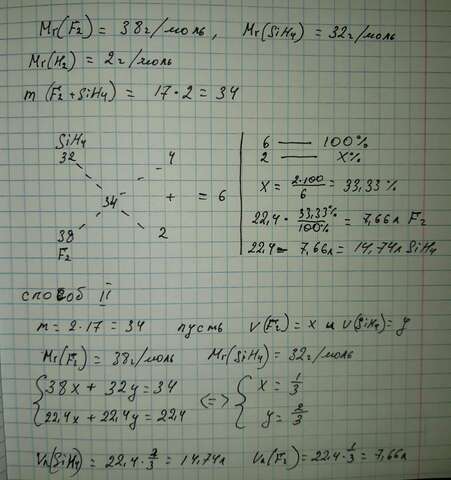 Mr(F2) = 38г/моль, Mr(SiH4) = 32г/моль
Mr(H2) = 2г/моль
m(F2+SiH4) = 17·2 = 34
SiH4
32 4
34 + = 6
38 2
F2
6 — 100%
2 — X%
X = 2·100/6 = 33,33%
22,4 · 33,33%/100% = 7,66л F2
22,4 - 7,66л = 14,74л SiH4
способ II
m = 2·17 = 34 пусть V(F2) = x и V(SiH4) = y
Mr(F2) = 38г/моль Mr(SiH4) = 32г/моль
{ 38x + 32y = 34 <=> { x = 1/3
22,4x + 22,4y = 22,4 y = 2/3
Vn(SiH4) = 22,4 · 2/3 = 14,74л Vn(F2) = 22,4 · 1/3 = 7,66л